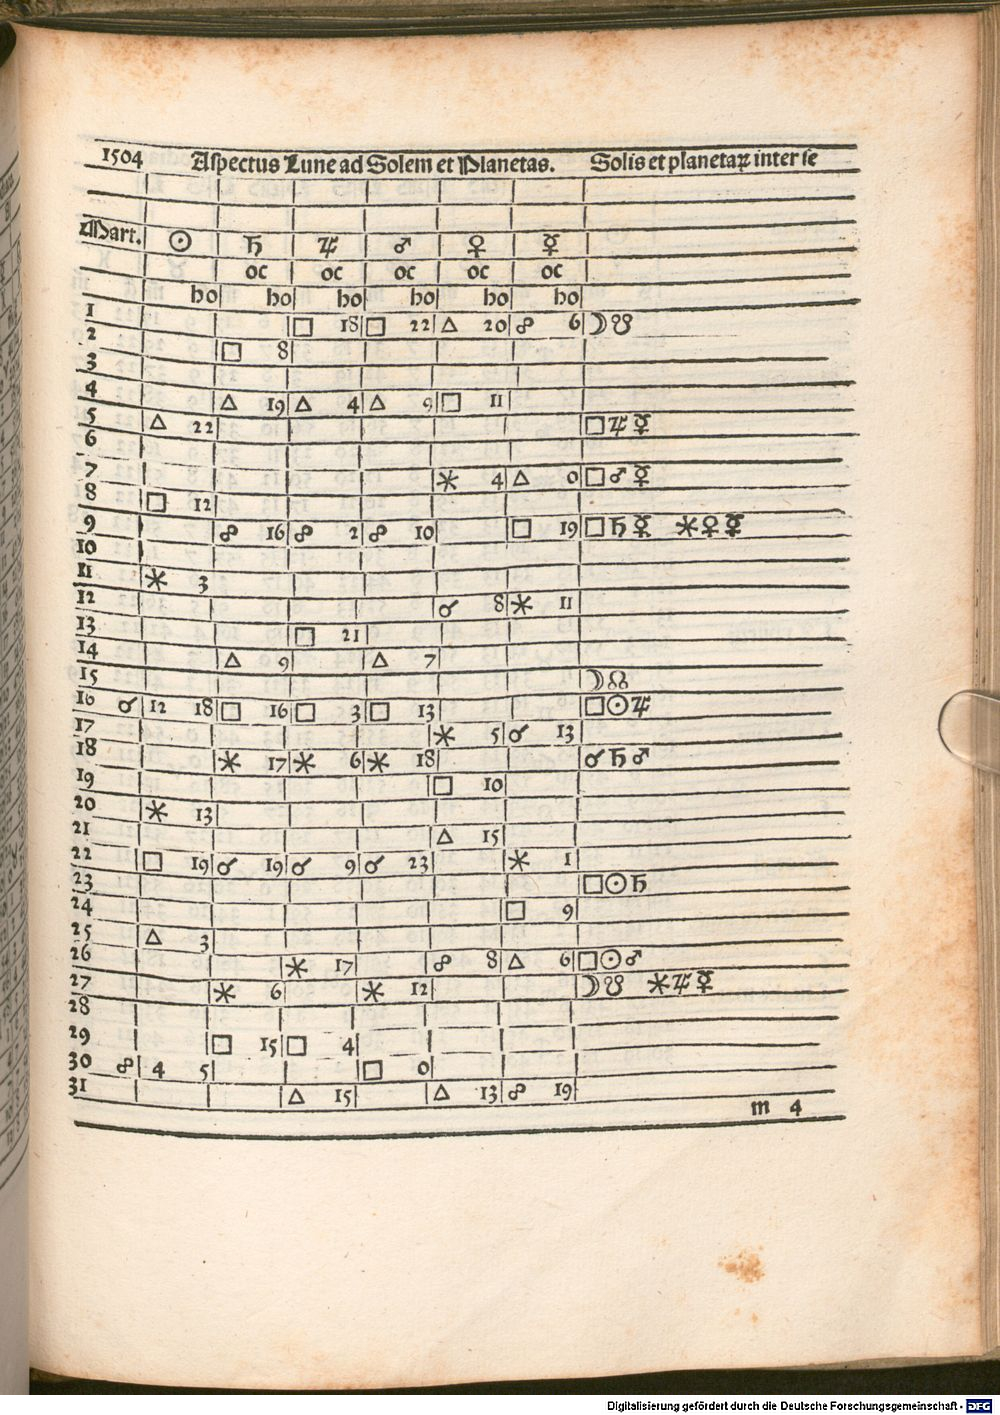 1504 Aſpectus Lune ad Solem et Planetas. Solis et planetaꝝ inter ſe
Mart. ☉ ♄ ♃ ♂ ♀ ☿
oc oc oc oc oc
ho ho ho ho ho ho
1 □ 18 □ 22 △ 20 ☍ 6 ☽☋
2 □ 8
3
4 △ 19 △ 4 △ 9 □ 11
5 △ 22 □♃☿
6
7 ⚹ 4 △ 0 □♂☿
8 □ 12
9 ☍ 16 ☍ 2 ☍ 10 □ 19 □♄☿ ⚹♀☿
10
11 ⚹ 3
12 ☌ 8 ⚹ 11
13 □ 21
14 △ 9 △ 7
15 ☽☊
16 ☌ 12 18 □ 16 □ 3 □ 13 □☉♃
17 ⚹ 5 ☌ 13
18 ⚹ 17 ⚹ 6 ⚹ 18 ☌♄♂
19 □ 10
20 ⚹ 13
21 △ 15
22 □ 19 ☌ 19 ☌ 9 ☌ 23 ⚹ 1
23 □☉♄
24 □ 9
25 △ 3
26 ⚹ 17 ☍ 8 △ 6 □☉♂
27 ⚹ 6 ⚹ 12 ☽☋ ⚹♃☿
28
29 □ 15 □ 4
30 ☍ 4 5 □ 0
31 △ 15 △ 13 ☍ 19
m 4
Digitalisierung gefördert durch die Deutsche Forschungsgemeinschaft - DFG